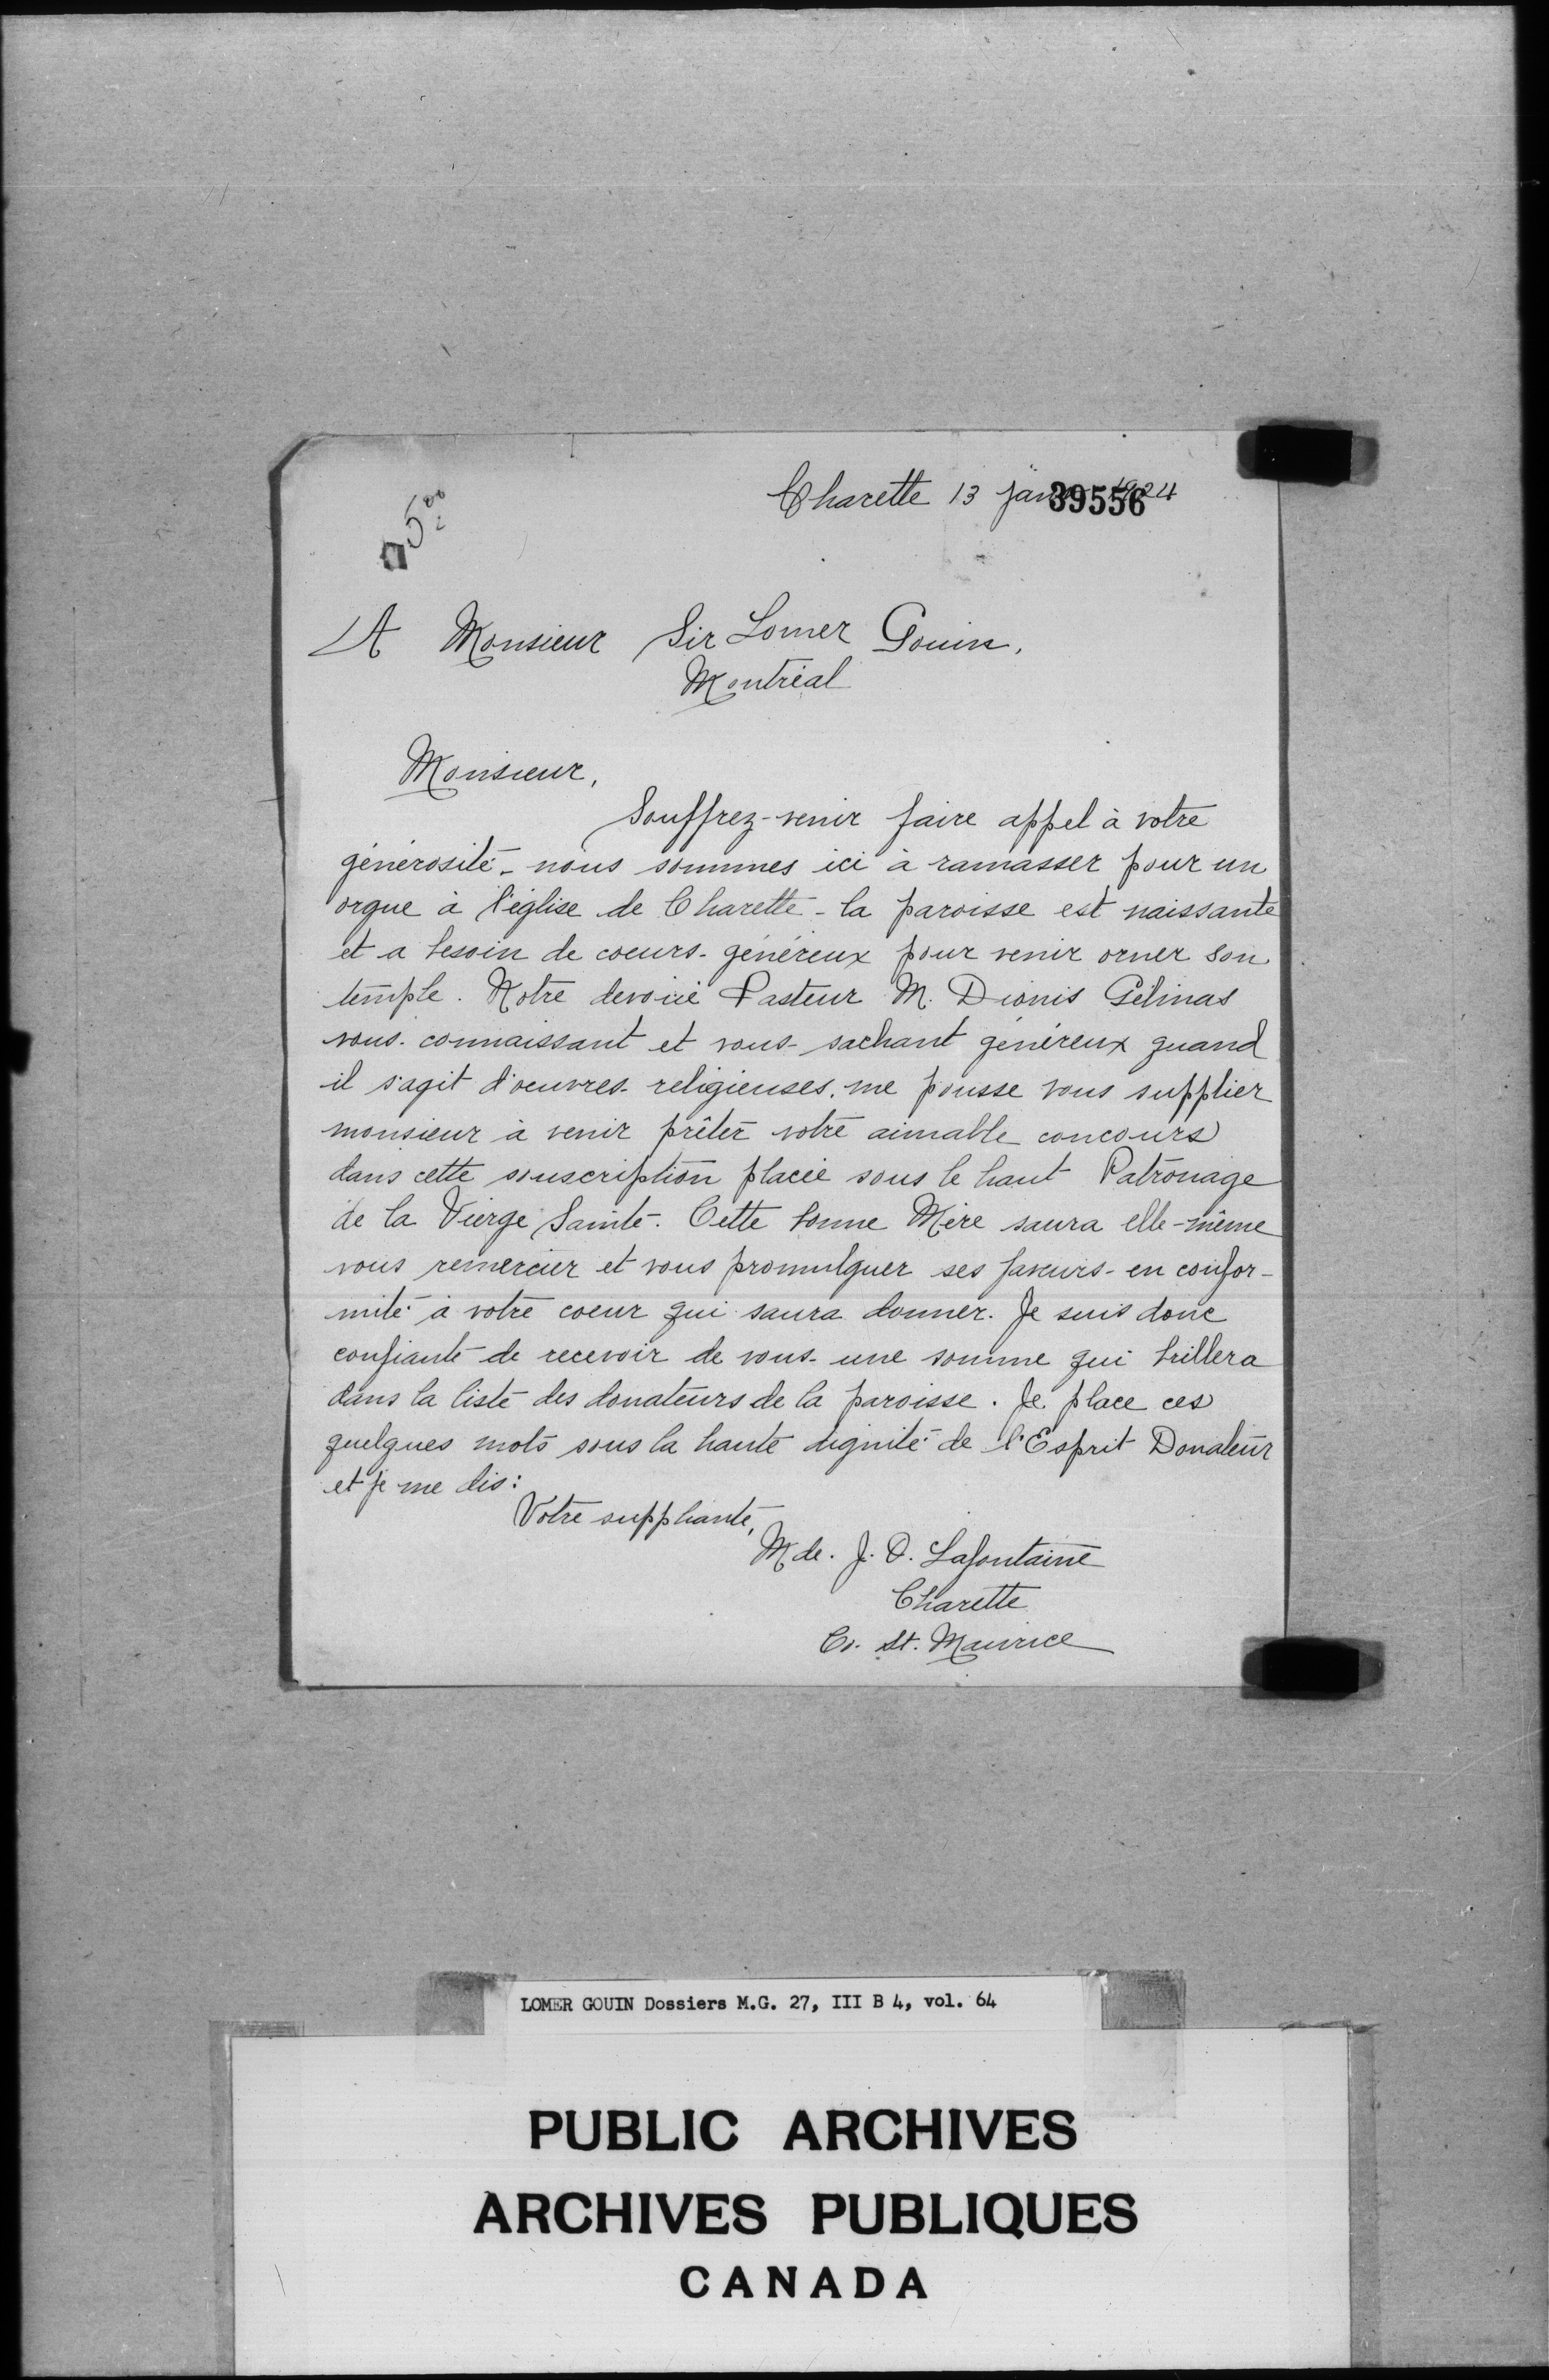 Charette 13 janv 1924
39556
5.00
A Monsieur Sir Lomer Gouin,
Montréal
Monsieur,
Souffrez-venir faire appel à votre
générosité - nous sommes ici à ramasser pour un
orgue à l'église de Charette - la paroisse est naissante
et a besoin de coeurs - généreux pour venir orner son
temple. Notre dévoué Pasteur M. Dionis Gélinas
vous connaissant et vous sachant généreux quand
il s'agit d'oeuvres religieuses. me pousse vous supplier
monsieur à venir prêter votre aimable concours
dans cette souscription placée sous le haut Patronage
de la Vierge Sainte. Cette bonne Mère saura elle-même
vous remercier et vous promulguer ses faveurs - en confor-
mité à votre coeur qui saura donner. Je suis donc
confiante de recevoir de vous une somme qui brillera
dans la liste des donateurs de la paroisse. Je place ces
quelques mots sous la haute dignité de l'Esprit Donateur
et je me dis:
Votre suppliante,
Mde. J. O. Lafontaine
Charette
Co. St. Maurice
LOMER GOUIN Dossiers M.G. 27, III B 4, vol. 64
PUBLIC ARCHIVES
ARCHIVES PUBLIQUES
CANADA